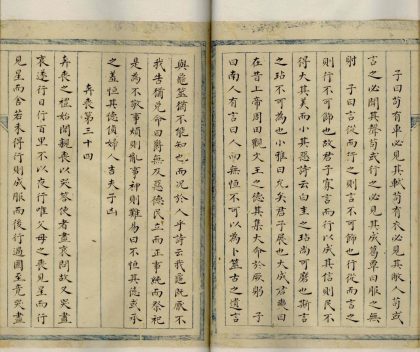 子曰苟有車必見其軾苟有衣必見其敝人苟或
言之必聞其聲苟或行之必見其成葛覃曰服之無
射 子曰言從而行之則言不可飾也行從而言之
則行不可飾也故君子寡言而行以成其信則民不
得大其美而小其惡詩云白圭之玷尚可磨也斯言
之玷不可為也小雅曰允矣君子展也大成君奭曰
在昔上帝周田觀文王之德其集大命于厥躬 子
曰南人有言曰人而無恒不可以為卜筮古之遺言
與龜筮猶不能知也而況於人乎詩云我龜既厭不
我告猶兌命曰爵無及惡德民立而正事純而祭祀
是為不敬事煩則亂事神則難易曰不恒其德或承
之羞恒其德偵婦人吉夫子凶
奔喪第三十四
奔喪之禮始聞親喪以哭答使者盡哀問故又哭盡
哀遂行日行百里不以夜行唯父母之喪見星而行
見星而舍若未得行則成服而後行過國至竟哭盡